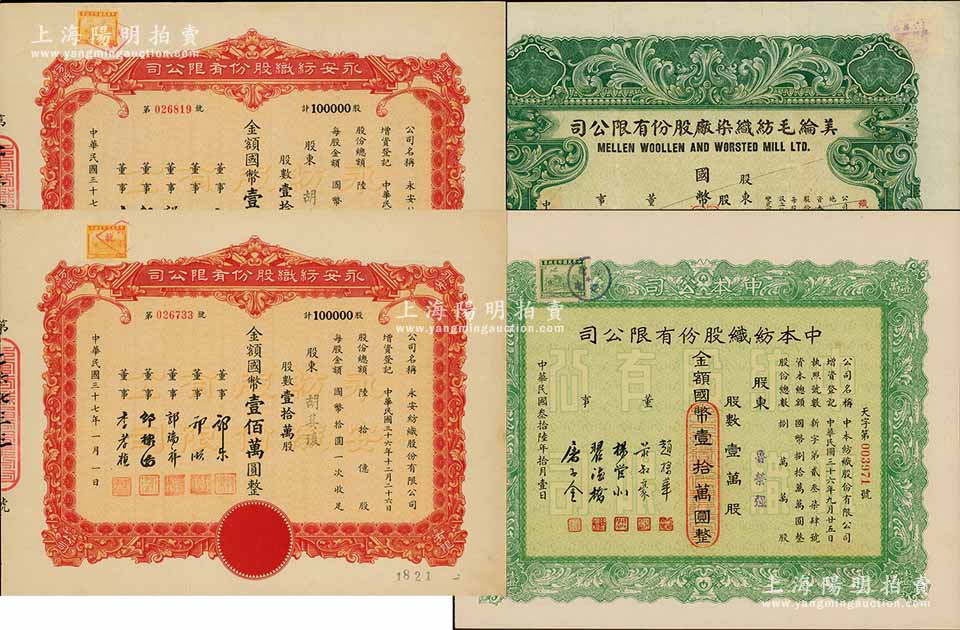 上海陽明拍賣
www.yangmingauction.com
司公限有份股織紡安永
第 026819 號
計 100000 股
公司名稱 永安
增資登記 中華民
股份總額 陸
每股金額 國幣
股東 胡
股數壹拾
金額國幣壹
董事
董事
董事
董事
董事
中華民國三十七
司公限有份股廠染織紡毛綸美
MELLEN WOOLLEN AND WORSTED MILL LTD.
股東
國幣
董
事
中
司公限有份股織紡安永
第 026733 號
計 100000 股
公司名稱 永安紡織股份有限公司
增資登記 中華民國三十六年十二月二十六日
股份總額 陸拾億股
每股金額 國幣拾圓一次收足
股東 胡其
股數壹拾萬股
金額國幣壹佰萬圓整
董事
董事
董事 郭瑞祥
董事
董事
中華民國三十七年一月一日
1821
上海陽明拍賣
www.yangmingauction.com
司公本中
司公限有份股織紡本中
天字第 003971 號
公司名稱 中本紡織股份有限公司
增資登記 中華民國三十六年九月廿五日
執照號數 新字第貳叁柒肆號
資本總額 國幣捌拾萬萬圓整
股份總數 捌萬萬股
股東 魯
股數 壹萬股
金額國幣壹拾萬圓整
董
事
中華民國叁拾陸年拾月壹日
上海陽明拍賣
www.yangmingauction.com